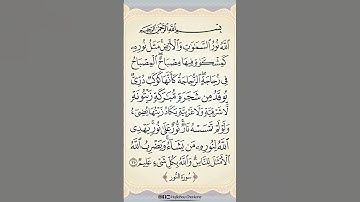 بِسْمِ ٱللَّهِ ٱلرَّحْمَٰنِ ٱلرَّحِيمِ
ٱللَّهُ نُورُ ٱلسَّمَٰوَٰتِ وَٱلْأَرْضِ مَثَلُ نُورِهِۦ
كَمِشْكَوٰةٍ فِيهَا مِصْبَاحٌ ٱلْمِصْبَاحُ
فِى زُجَاجَةٍ ٱلزُّجَاجَةُ كَأَنَّهَا كَوْكَبٌ دُرِّىٌّ
يُوقَدُ مِن شَجَرَةٍ مُّبَٰرَكَةٍ زَيْتُونَةٍ
لَّا شَرْقِيَّةٍ وَلَا غَرْبِيَّةٍ يَكَادُ زَيْتُهَا يُضِىٓءُ
وَلَوْ لَمْ تَمْسَسْهُ نَارٌ نُّورٌ عَلَىٰ نُورٍ يَهْدِى
ٱللَّهُ لِنُورِهِۦ مَن يَشَآءُ وَيَضْرِبُ ٱللَّهُ
ٱلْأَمْثَٰلَ لِلنَّاسِ وَٱللَّهُ بِكُلِّ شَىْءٍ عَلِيمٌ ٣٥
سُورَةُ النُّور